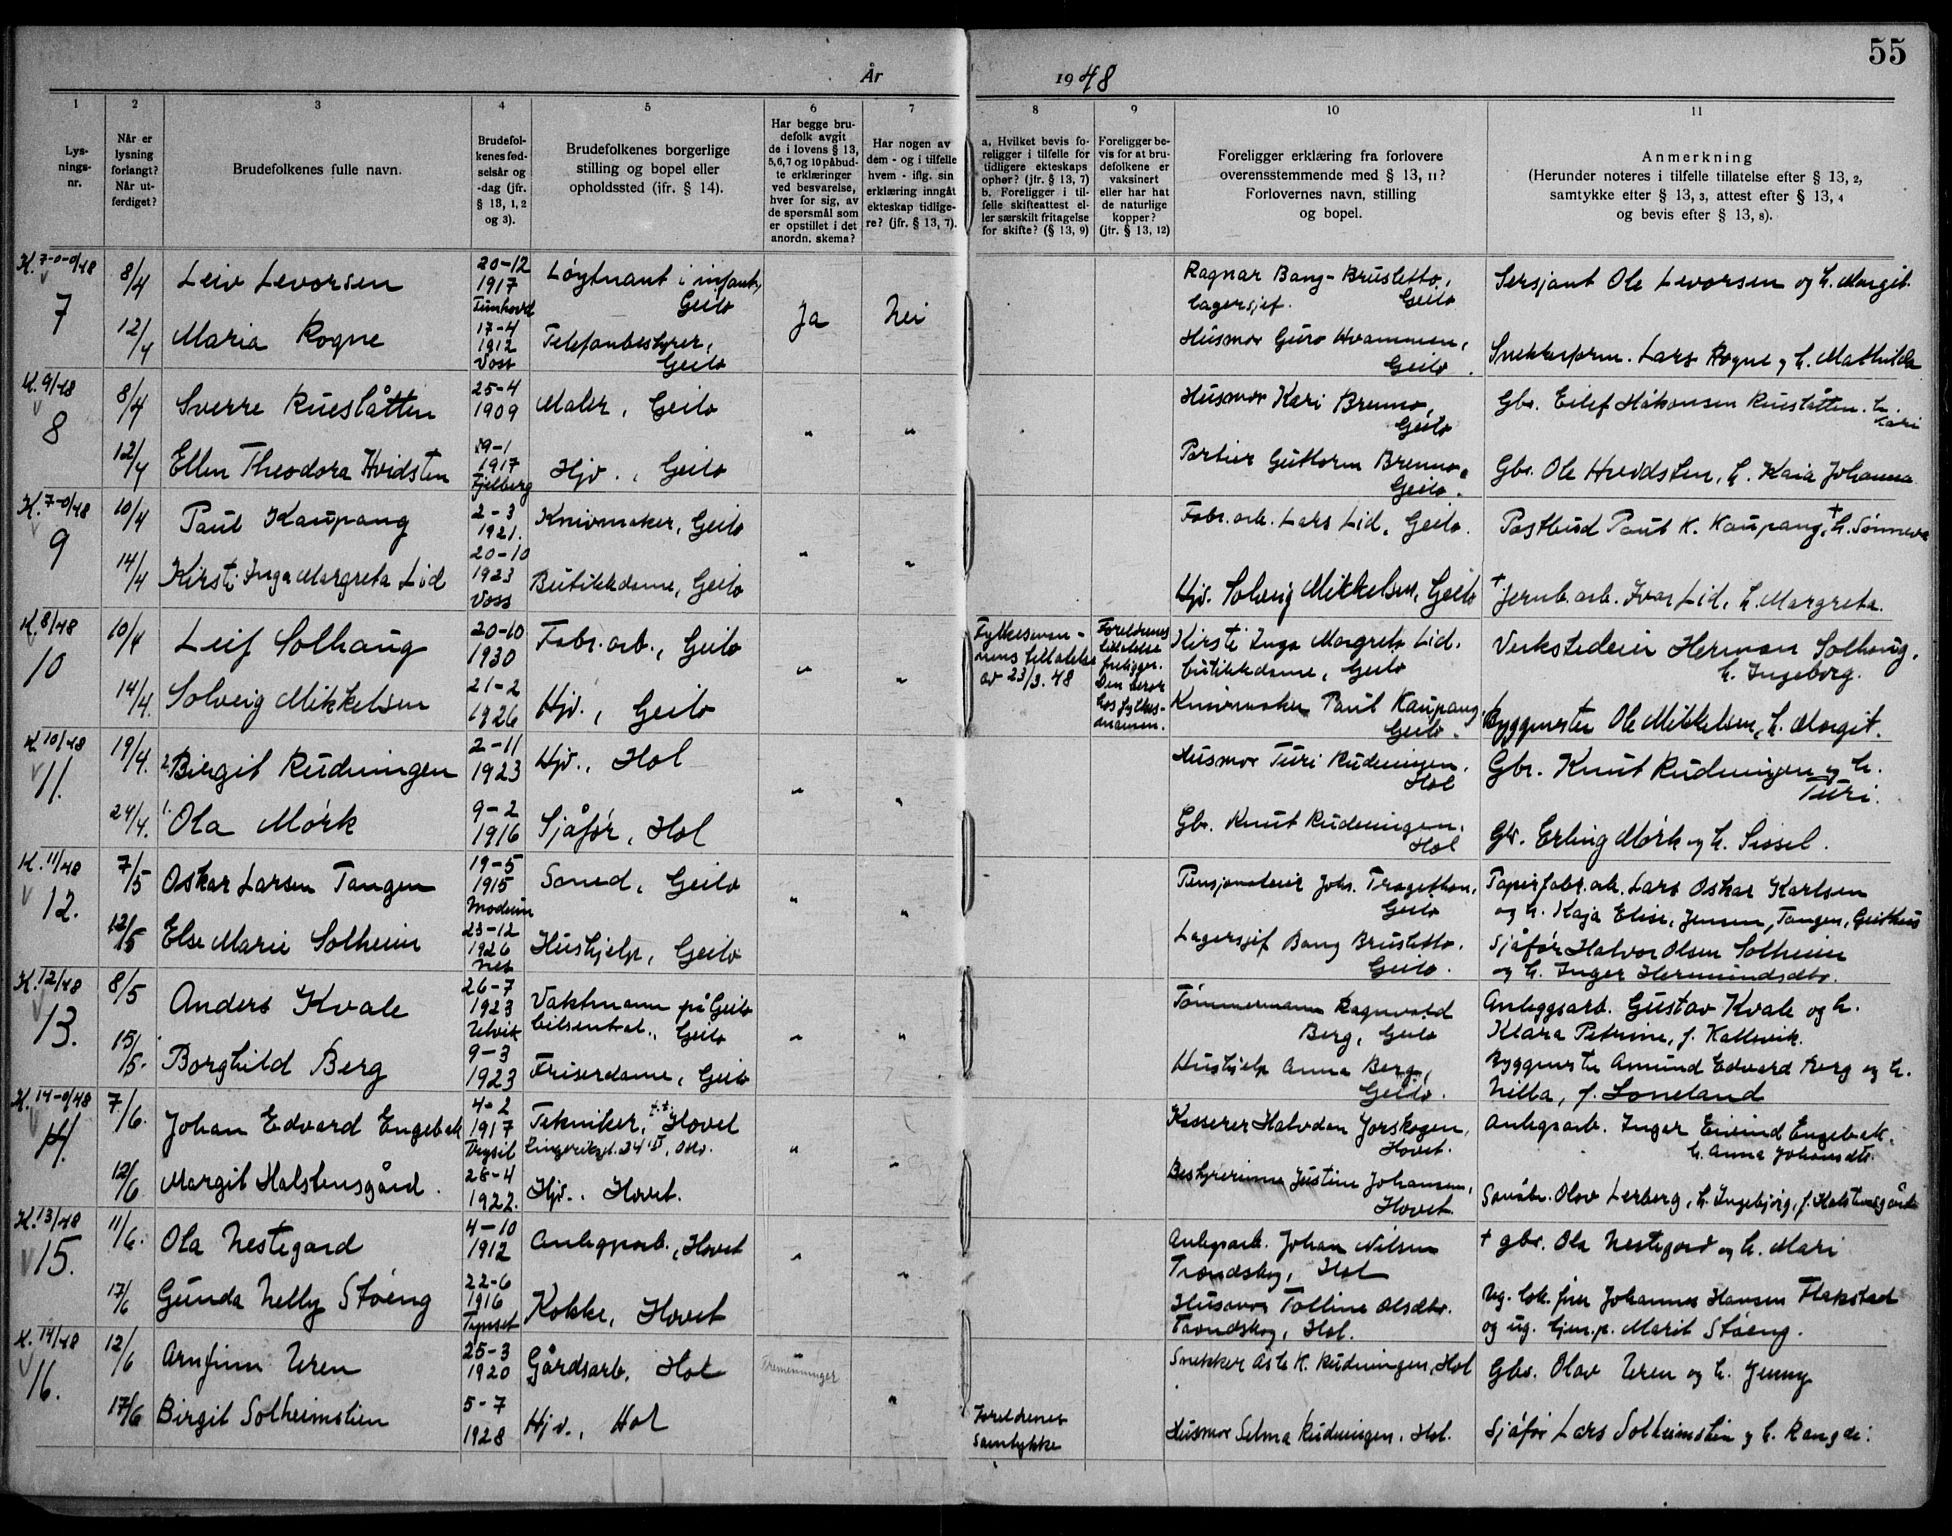 55
År 1948
1
2
3
4
5
6
7
8
9
10
11
Lys-
nings-
nr.
Når er
lysning
forlangt?
Når ut-
ferdiget?
Brudefolkenes fulle navn.
Brudefol-
kenes fød-
selsår og
-dag (jfr.
§ 13, 1, 2
og 3).
Brudefolkenes borgerlige
stilling og bopel eller
opholdssted (jfr. § 14).
Har begge bru-
defolk avgit
de i lovens § 13,
5,6,7 og 10 påbud-
te erklæringer
ved besvarelse,
hver for sig, av
de spørsmål som
er opstillet i det
anordn. skema?
Har nogen av
dem - og i tilfelle
hvem - iflg. sin
erklæring inngått
ekteskap tidlige-
re? (jfr. § 13, 7).
a. Hvilket bevis fo-
religger i tilfelle for
tidligere ekteskaps
ophør? (jfr. § 13, 7)
b. Foreligger i til-
felle skifteattest el-
ler særskilt fritagelse
for skifte? (§ 13, 9)
Foreligger be-
vis for at bru-
defolkene er
vaksinert
eller har hat
de naturlige
kopper?
(jfr. § 13, 12)
Foreligger erklæring fra forlovere
overensstemmende med § 13, 11?
Forlovernes navn, stilling
og bopel.
Anmerkning
(Herunder noteres i tilfelle tillatelse efter § 13, 2,
samtykke efter § 13, 3, attest efter § 13, 4
og bevis efter § 13, 8).
K. 7-0-0/48
7
8/4
Leiv Levorsen
20-12
1917
Tunhovd
Løytnant i infant.,
Geilo
Ja
Nei
Ragnar Bang-Brusletto,
lagersjef. Geilo
Sersjant Ole Levorsen og h. Margit
12/4
Maria Rogne
17-4
1912
Voss
Telefonbestyrer,
Geilo
Husmor Guro Hvammen,
Geilo.
Snekkerform. Lars Rogne og h. Mathilda
K. 9/48
8
8/4
Sverre Rueslåtten
25-4
1909
Maler, Geilo
"
"
Husmor Kari Brenno,
Geilo
Gbr. Eilef Håkonsen Rueslåtten. h.
Kari
12/4
Ellen Theodora Hvidsten
29-1
1917
Fjelberg
Hjv., Geilo
Portier Guttorm Brenno,
Geilo.
Gbr. Ole Hvidsten, h. Kaia Johanna
K. 7-0/48
9
10/4
Paul Kaupang
2-3
1921.
Knivmaker, Geilo
"
"
Fabr.arb. Lars Lid, Geilo.
Postbud Paul K. Kaupang, + h. Sønneva
14/4
Kirsti Inga Margreta Lid
20-10
1923
Voss
Butikkdame, Geilo
Hjv. Solveig Mikkelsen, Geilo
+ Jernb.arb. Ivar Lid, h. Margreta.
K. 8/48
10
10/4
Leif Solhaug
20-10
1930
Fabr.arb., Geilo
"
"
Fylkesman-
nens tillatelse
av 23/3.48
Foreldrenes
tillatelse
foreligger.
Den beror
hos fylkes-
mannen.
Kirsti Inga Margreta Lid.
butikkdame, Geilo
Verkstedeier Herman Solhaug,
h. Ingeborg.
14/4.
Solveig Mikkelsen
21-2
1926
Hjv., Geilo
Knivmaker Paul Kaupang,
Geilo.
Byggmester Ole Mikkelsen, h. Margit.
K. 10/48
11.
19/4.
2. Birgit Rudningen
2-11
1923
Hjv., Hol
"
"
Husmor Turi Rudningen.
Hol
Gbr. Knut Rudningen og h.
Turi.
24/4.
1. Ola Mørk
9-2
1916
Sjåfør, Hol
Gbr. Knut Rudningen.
Hol
Gbr. Erling Mørk og h. Sissel.
K. 11/48
12.
7/5
Oskar Larsen Tangen
19-5
1915
Modum
Geilo
"
"
Pensjonateier Johs. Tragethon,
Geilo
Papirfabr.arb. Lars Oskar Karlsen
og h. Kaja Elise, Jensen, Tangen, Geithus
12/5
Else Marie Solheim
23-12
1926
Nes
Hushjelp, Geilo
Lagersjef Bang Brusletto.
Geilo.
Sjåfør Halvor Olsen Solheim
og h. Inger Hermundsdtr.
K. 12/48
13.
8/5
Anders Kvale
26-7
1923
Ulvik
Vaktmann på Geilo
bilsentral., Geilo
"
"
Tømmermann Ragnvald
Berg, Geilo
Anleggsarb. Gustav Kvale og h.
Klara Petrine, f. Kallevik.
15/5.
Borghild Berg
9-3
1923
Friserdame, Geilo
Hushjelp Anna Berg,
Geilo.
Byggmester Amund Edvard Berg og h.
Nilla, f. Loneland
K. 14-0/48
14.
7/6.
Johan Edvard Engebak
4-2
1917
Trysil
Tekniker, t.t. Hovet
"
"
Kasserer Halvdan Jorskogen,
Hovet.
Anlegsarb. Inger Eivind Engebak.
h. Anna Johansdtr.
12/6
Margit Halstensgård.
28-4
1922.
Hjv.. Hovet.
Bestyrerinne Justine Johansen,
Hovet.
Olav Lerberg, h. Ingebjørg, f. Halstensgårde
K. 13/48
15.
11/6.
Ola Nestegard
4-10
1912
Anleggsarb., Hovet
"
"
Anlegsarb. Johan Nilsen
Trondskog, Hol
+ gbr. Ola Nestegard og h. Mari
17/6
Gunda Nelly Støeng
22-6
1916
Tynset
Kokke, Hovet
Husmor Folline Olsdtr.
Trondskog, Hol.
Ug. Johannes Hansen Flakstad
og ug. tjen.p. Marit Støeng.
K. 14/48
16.
12/6
Arnfinn Uren
25-3
1920
Gårdsarb. Hol
"
Tremenninger
"
Snekker Asle K. Rudningen, Hol
Gbr. Olav Uren og h. Jenny
17/6
Birgit Solheimslien
5-7
1928
Hjv., Hol
Foreldrenes
samtykke
Husmor Selma Rudningen. Hol.
Sjåfør Lars Solheimslien og h. Rangdi.